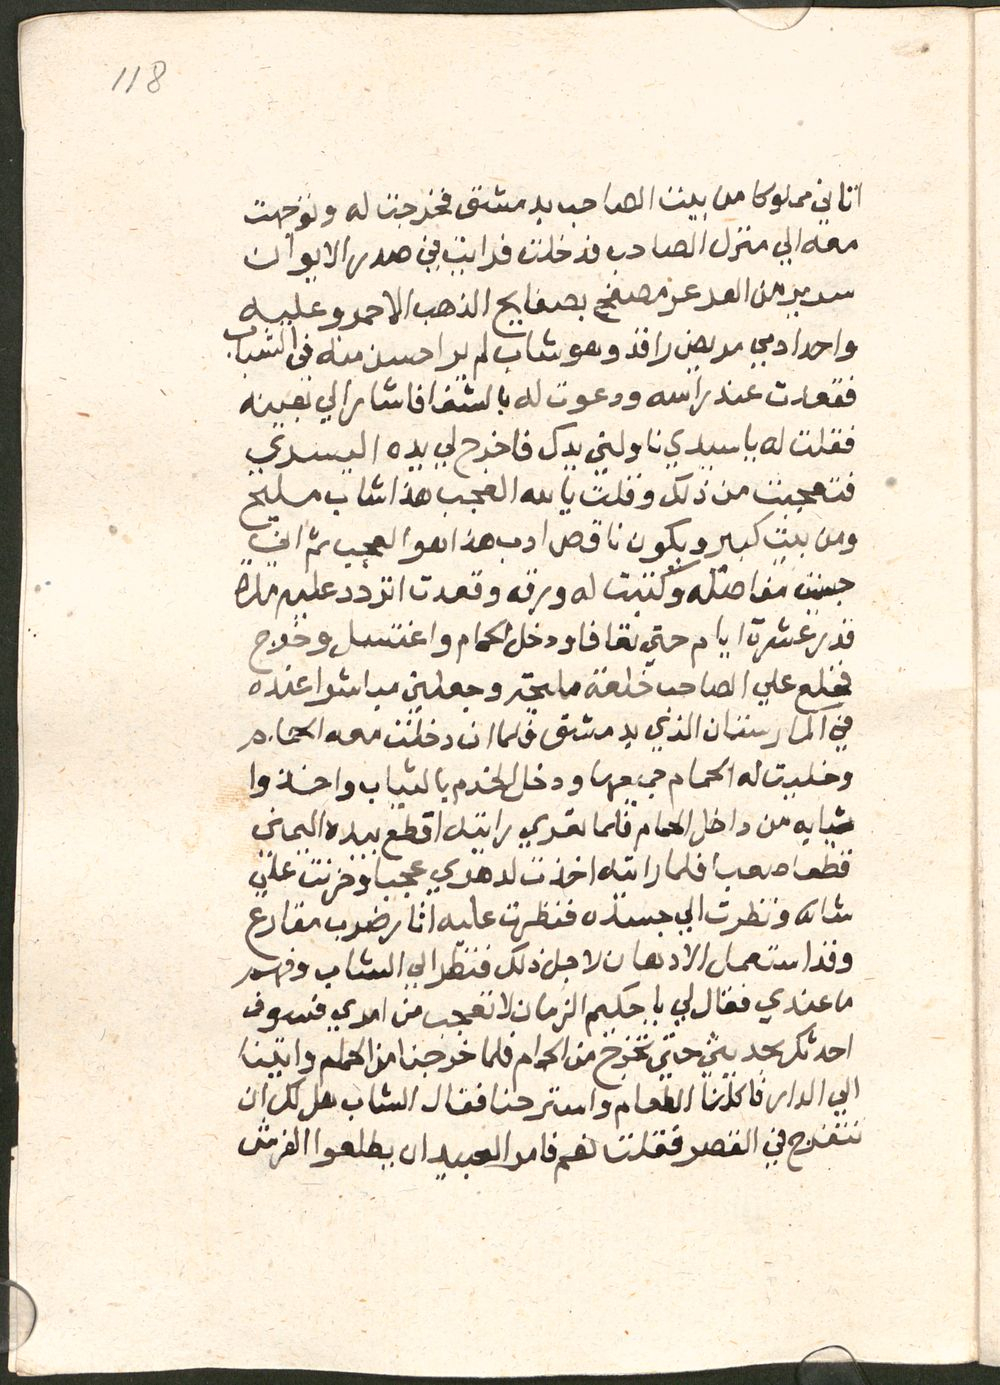 118
اتاني مملوكا من بيت الصاحب بدمشق فخرجت له وتوجهت
معه الي منزل الصاحب فدخلت فرايت في صدر الايوان
سرير من العرعر مصفح بصفايح الذهب الاحمر وعليه
واحد ادمي مريض راقد وهو شاب لم ير احسن منه في الشباب
فقعدت عند راسه ودعوت له بالشفا فاشار الي بعينه
فقلت له يا سيدي ناولني يدك فاخرج لي يده اليسري
فتعجبت من ذلك وقلت يا لله العجب هذا شاب مليح
ومن بيت كبير ويكون ناقص ادب هذا هوا العجب ثم اني
جسيت مفاصله وكتبت له ورقه وقعدت اتردد عليه مده
قدر عشرة ايام حتي تعافا ودخل الحمام واغتسل وخرج
فخلع علي الصاحب خلعة مليحة وجعلني مباشرا عنده
في المارستان الذي بدمشق فلما ان دخلت معه الحمام
وخليت له الحمام جميعها ودخل الخدم بالثياب واخذوا
ثيابه من داخل الحمام فلما تعري رايته اقطع بيده اليماني
قطعا صعبا فلما رايته اخذت لدهري عجبا وحزنت علي
شانه ونظرت الي جسده فنظرت عليه اثار ضرب مقارع
وقد استعمل الادهان لاجل ذلك فنظر الي الشاب وفهم
ما عندي فقال لي يا حكيم الزمان لا تعجب من امري فسوف
احدثك بحديثي حتي نخرج من الحمام فلما خرجنا من الحمام واتينا
الي الدار فاكلنا الطعام واسترحنا فقال الشاب هل لك ان
تتفرج في القصر فقلت نعم فامر العبيد ان يطلعوا الفرش